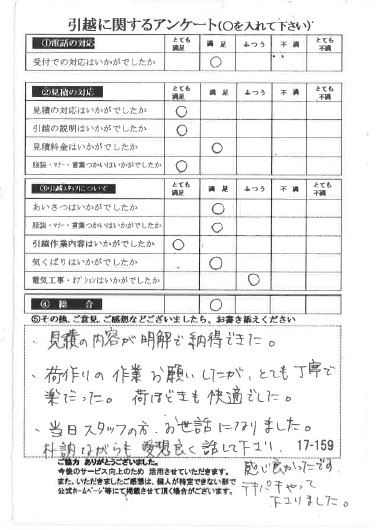 引越に関するアンケート(〇を入れて下さい)
①電話の対応 とても満足 満足 ふつう 不満 とても不満
受付での対応はいかがでしたか 〇
②見積の対応 とても満足 満足 ふつう 不満 とても不満
見積の対応はいかがでしたか 〇
引越の説明はいかがでしたか 〇
見積料金はいかがでしたか 〇
服装・マナー・言葉づかいはいかがでしたか 〇
③引越スタッフについて とても満足 満足 ふつう 不満 とても不満
あいさつはいかがでしたか 〇
服装・マナー・言葉づかいはいかがでしたか 〇
引越作業内容はいかがでしたか 〇
気くばりはいかがでしたか 〇
電気工事・オプションはいかがでしたか 〇
④総合 〇
⑤その他、ご意見、ご感想などございましたら、お書き添えください
・見積の内容が明解で納得できた。
・荷作りの作業お願いしたが、とても丁寧で
楽だった。荷ほどきも快適でした。
・当日スタッフの方、お世話になりました。
朴訥ながらも愛想良く話して下さり、
17-159
感じ良かったです。
テキパキやって
下さりました。
ご協力 ありがとうございました。
今後のサービス向上のため 活用させていただきます。
また、いただきましたご感想は、個人が特定できない形で
公式ホームページ等にて掲載させて頂く場合がございます。